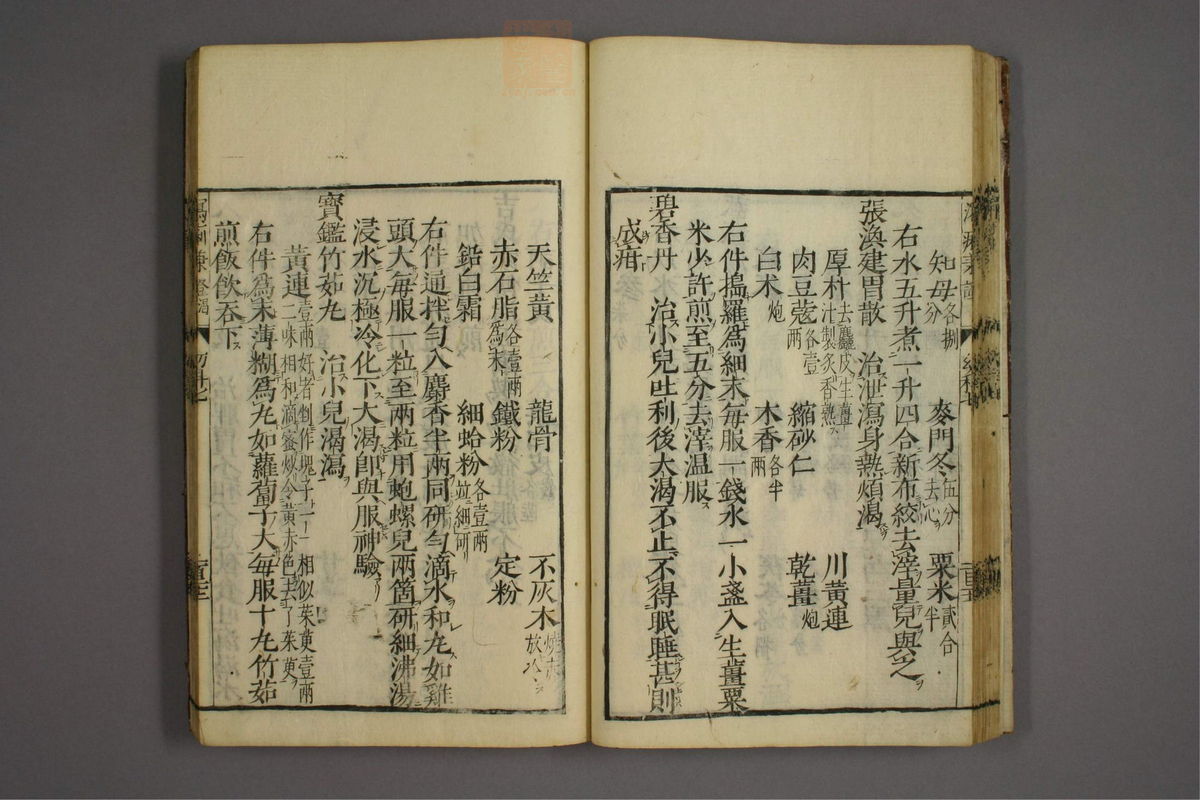 知母各捌分 麥門冬伍分去心 粟米貳合半
右水五升煮一升四合新布絞去滓量兒與之
張渙建胃散 治泄瀉身熱煩渴
厚朴去麤皮生薑汁製炙香熟 川黃連
肉豆蔻各壹兩 縮砂仁 乾薑炮
白朮炮 木香各半兩
右件搗羅爲細末每服一錢水一小盞入生薑粟
米少許煎至五分去滓温服
碧香丹 治小兒吐利後大渴不止不得眠睡甚則
成疳
天竺黃 龍骨 不灰木燒赤放冷
赤石脂各壹兩爲末 鐵粉 定粉
鉛白霜 細蛤粉各壹兩並細研
右件通拌勻入麝香半兩同研勻滴水和丸如雞
頭大每服一粒至兩粒用蚫螺兒兩箇研細沸湯
浸水沉極冷化下大渴即與服神驗
寶鑑竹茹丸 治小兒渴瀉
黃連壹兩好者剉作塊子一一相似茱萸壹兩二味相和滴蜜炒令黃赤色去了茱萸
右件爲末薄糊爲丸如蘿蔔子大每服十丸竹茹
煎飯飲吞下